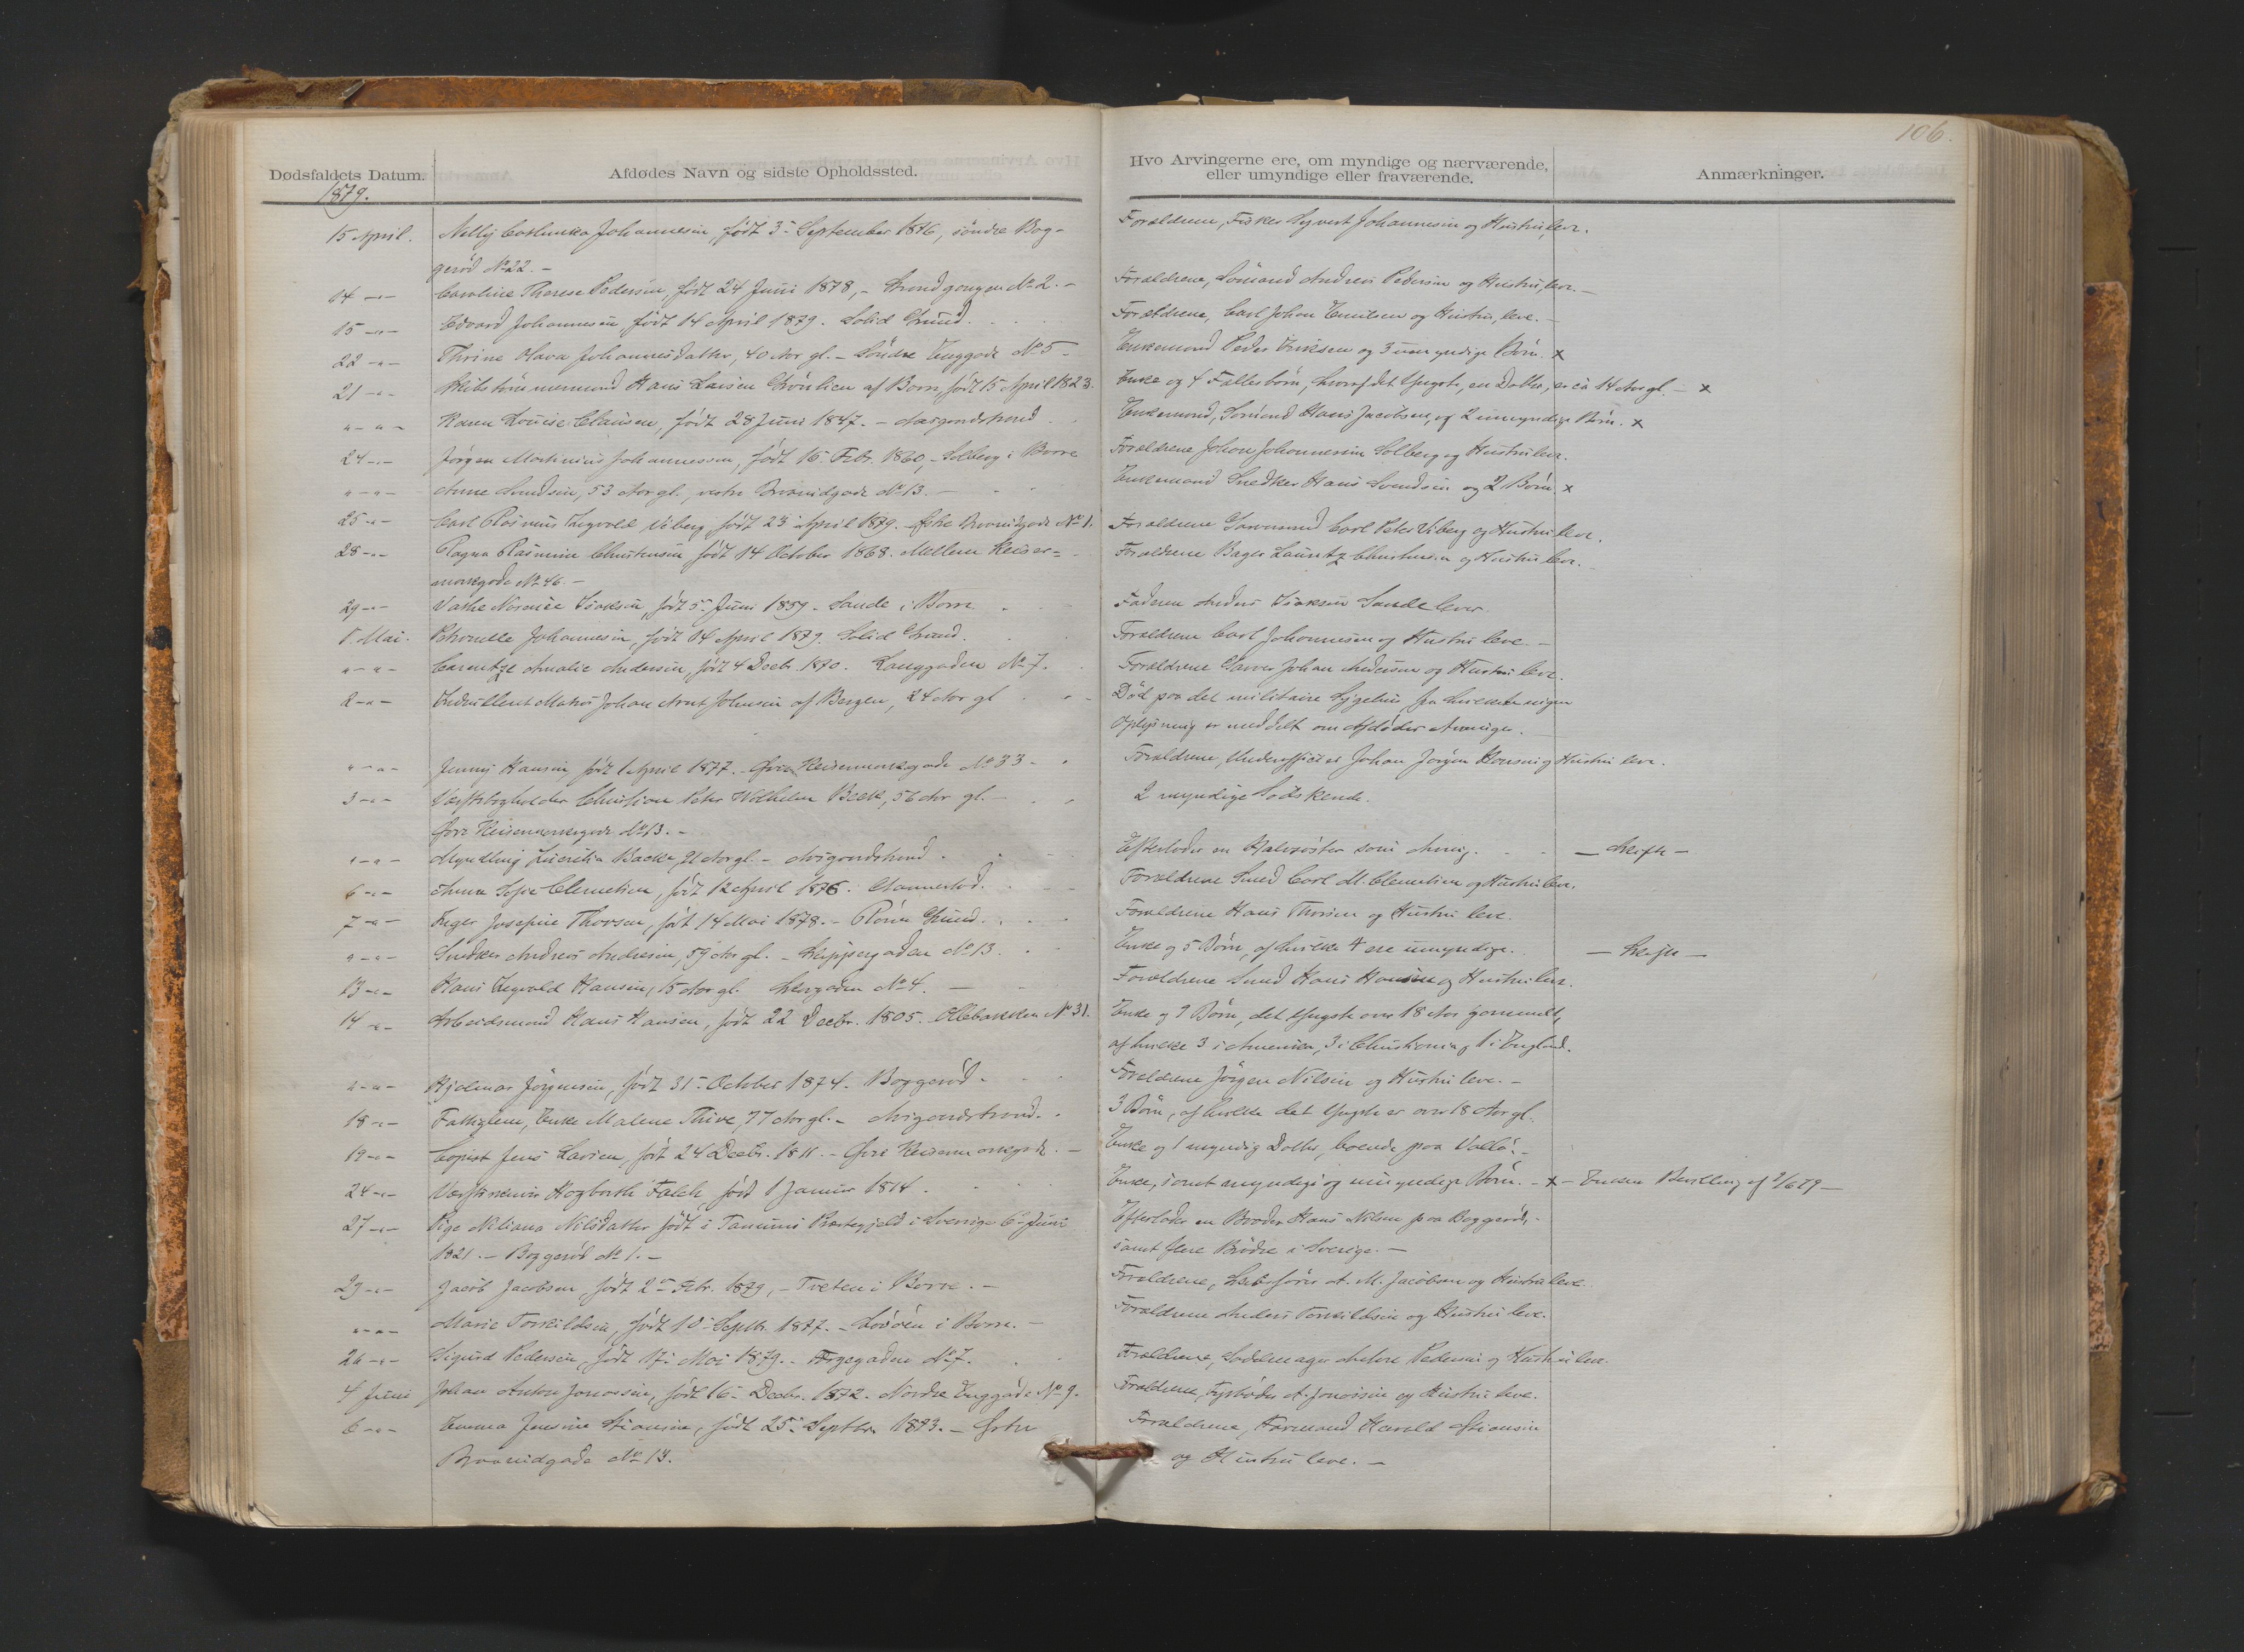 106.
Dødsfaldets Datum. Afdødes Navn og sidste Opholdssted. Hvo Arvingerne ere, om myndige og nærværende,
eller umyndige eller fraværende. Anmærkninger.
1879.
15 April. Nelly Johannesen, født 3. September 1876, søndre Bog- Forældrene, Fisker Johannesen og Hustru, leve.
gerød No 22. –
14 –"– Caroline Therese Pedersen, født 24 Juni 1878, – No 2. – Forældrene, Sømand Andreas Pedersen og Hustru, leve. –
15 –"– Edvard Johannesen, født 14 April 1879. Solid Grund. Forældrene, Carl Johan Emilsen og Hustru, leve. –
22 –"– Thrine Olava Johannesdatter, 40 Aar gl. – Søndre Enggade No 5 – Enkemand Peder Eriksen og 3 umyndige Børn. x
21 –"– Skibstømmermand Hans Larsen Grønlien af Borre, født 15 April 1823. Enke og 4 Fællesbørn, hvoraf det Yngste, en Datter, er ca 14 Aar gl. – x
"–"– Karen Louise Clausen, født 28 Juni 1847. – Enkemand, Sømand Hans Jacobsen, og 2 umyndige Børn. x
24 –"– Jørgen Martinius Johannessen, født 16. Febr. 1860, – Solberg i Borre Forældrene Johan Johannesen Solberg og Hustru leve.
"–"– Anne Svendsen, 53 Aar gl., vestre Braarudgade No 13. – Enkemand Snedker Hans Svendsen og 2 Børn. x
25 –"– Carl Rasmus Ingvald Viberg, født 23 April 1879. – Østre Braarudgade No 1. Forældrene Carl Peter Viberg og Hustru leve.
28 –"– Ragna Rasmine Christensen født 14 October 1868. Mellem Keiser= Forældrene Bager Lauritz Christensen og Hustru leve.
marksgade No 46. –
29 –"– Isaksen, født 5. Juni 1859. Sande i Borre. Faderen Anders Isaksen Sande lever.
1. Mai. Petronelle Johannesen, født 14 April 1879. Solid Grund. Forældrene Carl Johannesen og Hustru leve. –
"–"– Amalie Andersen, født 4 Decbr. 1870. Langgaden No 7. Forældrene Garver Johan Andersen og Hustru leve.
2 –"– Indrulleret Matros Johan Arnt Johnsen af Bergen, 24 Aar gl Død paa det militaire Sygehus, fra hvilket ingen
Oplysning er meddelt om Afdødes Arvinger.
"–"– Jenny Hansen, født 1 April 1877. – Øvre Keisermarksgade No 33 – Forældrene, Underofficer Johan Jørgen Hansen og Hustru leve.
3 –"– Værftsbogholder Christian Peter Wilhelm Beck, 56 Aar gl. – 2 myndige Sødskende.
Øvre Keisermarksgade No 13. –
"–"– Myndling Lucretia Backe, 21 Aar gl. – Efterlader en Halvsøster som Arving. – Skifte –
6 –"– Anna Sofie Clementsen, født 12 April 1876. Forældrene Smed Carl M. Clementsen og Hustru leve.
7 –"– Inger Josefine Thorsen, født 14 Mai 1878. – Grund. Forældrene Hans Thorsen og Hustru leve.
"–"– Snedker Andreas Andresen, 59 Aar gl. – Skippergaden No 13. Enke og 5 Børn, af hvilke 4 ere umyndige. – Skifte –
13 –"– Hans Ingvald Hansen, 15 Aar gl. No 4. – Forældrene Smed Hans Hansen og Hustru leve.
14 –"– Arbeidsmand Hans Hansen, født 22 Decbr. 1805. Ollebakken No 31. Enke og 9 Børn, det Yngste over 18 Aar gammelt,
af hvilke 3 i Amerika, 3 i Christiania og 1 i England.
"–"– Hjalmar Jørgensen, født 31. October 1874. Boggerød. Forældrene Jørgen Nilsen og Hustru leve. –
18 –"– Fattiglem, Enke Malene Thive, 77 Aar gl. – 3 Børn, af hvilke det Yngste er over 18 Aar gl.
19 –"– Copist Jens Larsen, født 24 Decbr. 1811. – Øvre Keisermarksgade. – Enke og 1 myndig Datter, boende paa Vallø. –
24 –"– Hogbarth Falch, født 1 Januar 1814. Enke, samt myndige og umyndige Børn. – x – Enken Bevilling af 7/6 79 –
27 –"– Pige Niliana Nilsdatter født i Tanums Præstegjeld i Sverige 6. Juni Efterlader en Broder Hans Nilsen paa Boggerød, –
1821. – Boggerød No 1. – samt flere Brødre i Sverige. –
29 –"– Jacob Jacobsen, født 2. Febr. 1879, – Tveten i Borre. – Forældrene, Skibsfører A. M. Jacobsen og Hustru leve.
"–"– Marie Torkildsen, født 10. Septbr. 1877. – i Borre. – Forældrene Anders Torkildsen og Hustru leve.
26 –"– Sigurd Pedersen, født 17. Mai 1879. – Færgegaden No 7. Forældrene, Sadelmager Pedersen og Hustru leve.
4 Juni Johan Anton Jonassen, født 16. Decbr. 1872. Nordre Enggade No 9. Forældrene, Fyrbøder A. Jonassen og Hustru leve.
6 –"– Emma Jensine Stiansen, født 25. Septbr. 1873. – Østre Forældrene, Formand Harald Stiansen
Braarudgade No 14. og Hustru leve. –